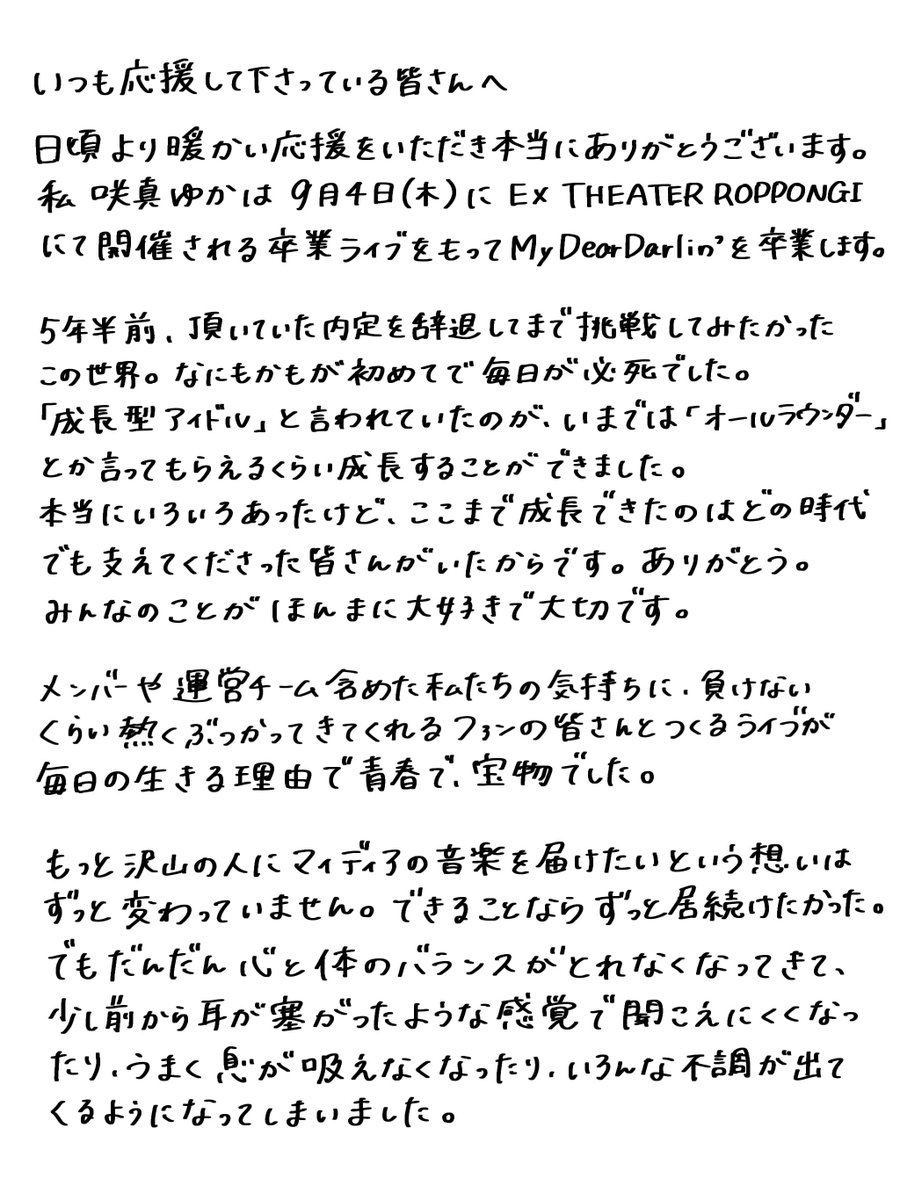 いつも応援して下さっている皆さんへ
日頃より暖かい応援をいただき本当にありがとうございます。
私 咲真ゆかは 9月4日(木)に EX THEATER ROPPONGI
にて開催される卒業ライブをもってMyDearDarlin'を卒業します。
5年半前、頂いていた内定を辞退してまで挑戦してみたかった
この世界。なにもかもが初めてで毎日が必死でした。
「成長型アイドル」と言われていたのが、いまでは「オールラウンダー」
とか言ってもらえるくらい成長することができました。
本当にいろいろあったけど、ここまで成長できたのはどの時代
でも支えてくださった皆さんがいたからです。ありがとう。
みんなのことがほんまに大好きで大切です。
メンバーや運営チーム含めた私たちの気持ちに、負けない
くらい熱くぶつかってきてくれるファンの皆さんとつくるライブが
毎日の生きる理由で青春で、宝物でした。
もっと沢山の人にマイディアの音楽を届けたいという想いは
ずっと変わっていません。できることならずっと居続けたかった。
でもだんだん心と体のバランスがとれなくなってきて、
少し前から耳が塞がったような感覚で聞こえにくくなっ
たり、うまく息が吸えなくなったり、いろんな不調が出て
くるようになってしまいました。